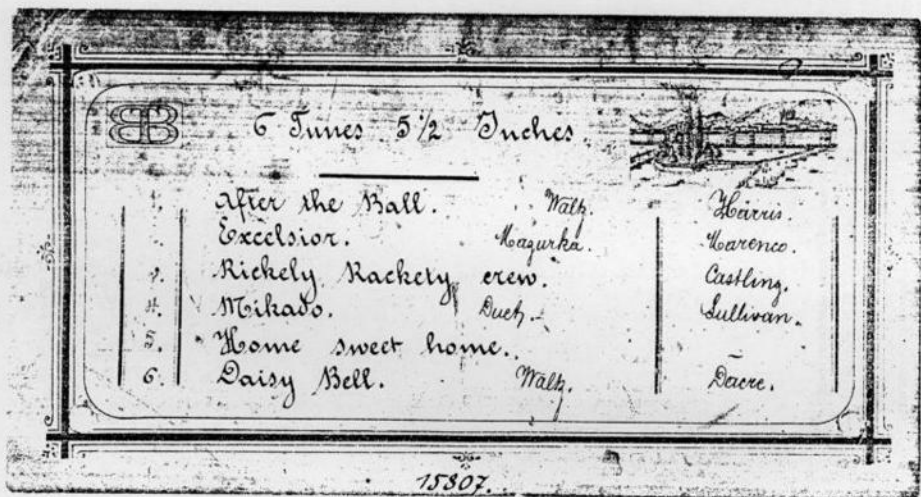 6 Tunes 5 1/2 Inches.
1. After the Ball. Waltz. Harris.
Excelsior. Mazurka. Marenco.
3. Rickety Rackety crew. Castling.
4. Mikado. Duet. Sullivan.
5. Home sweet home.
6. Daisy Bell. Waltz. Dacre.
15807.